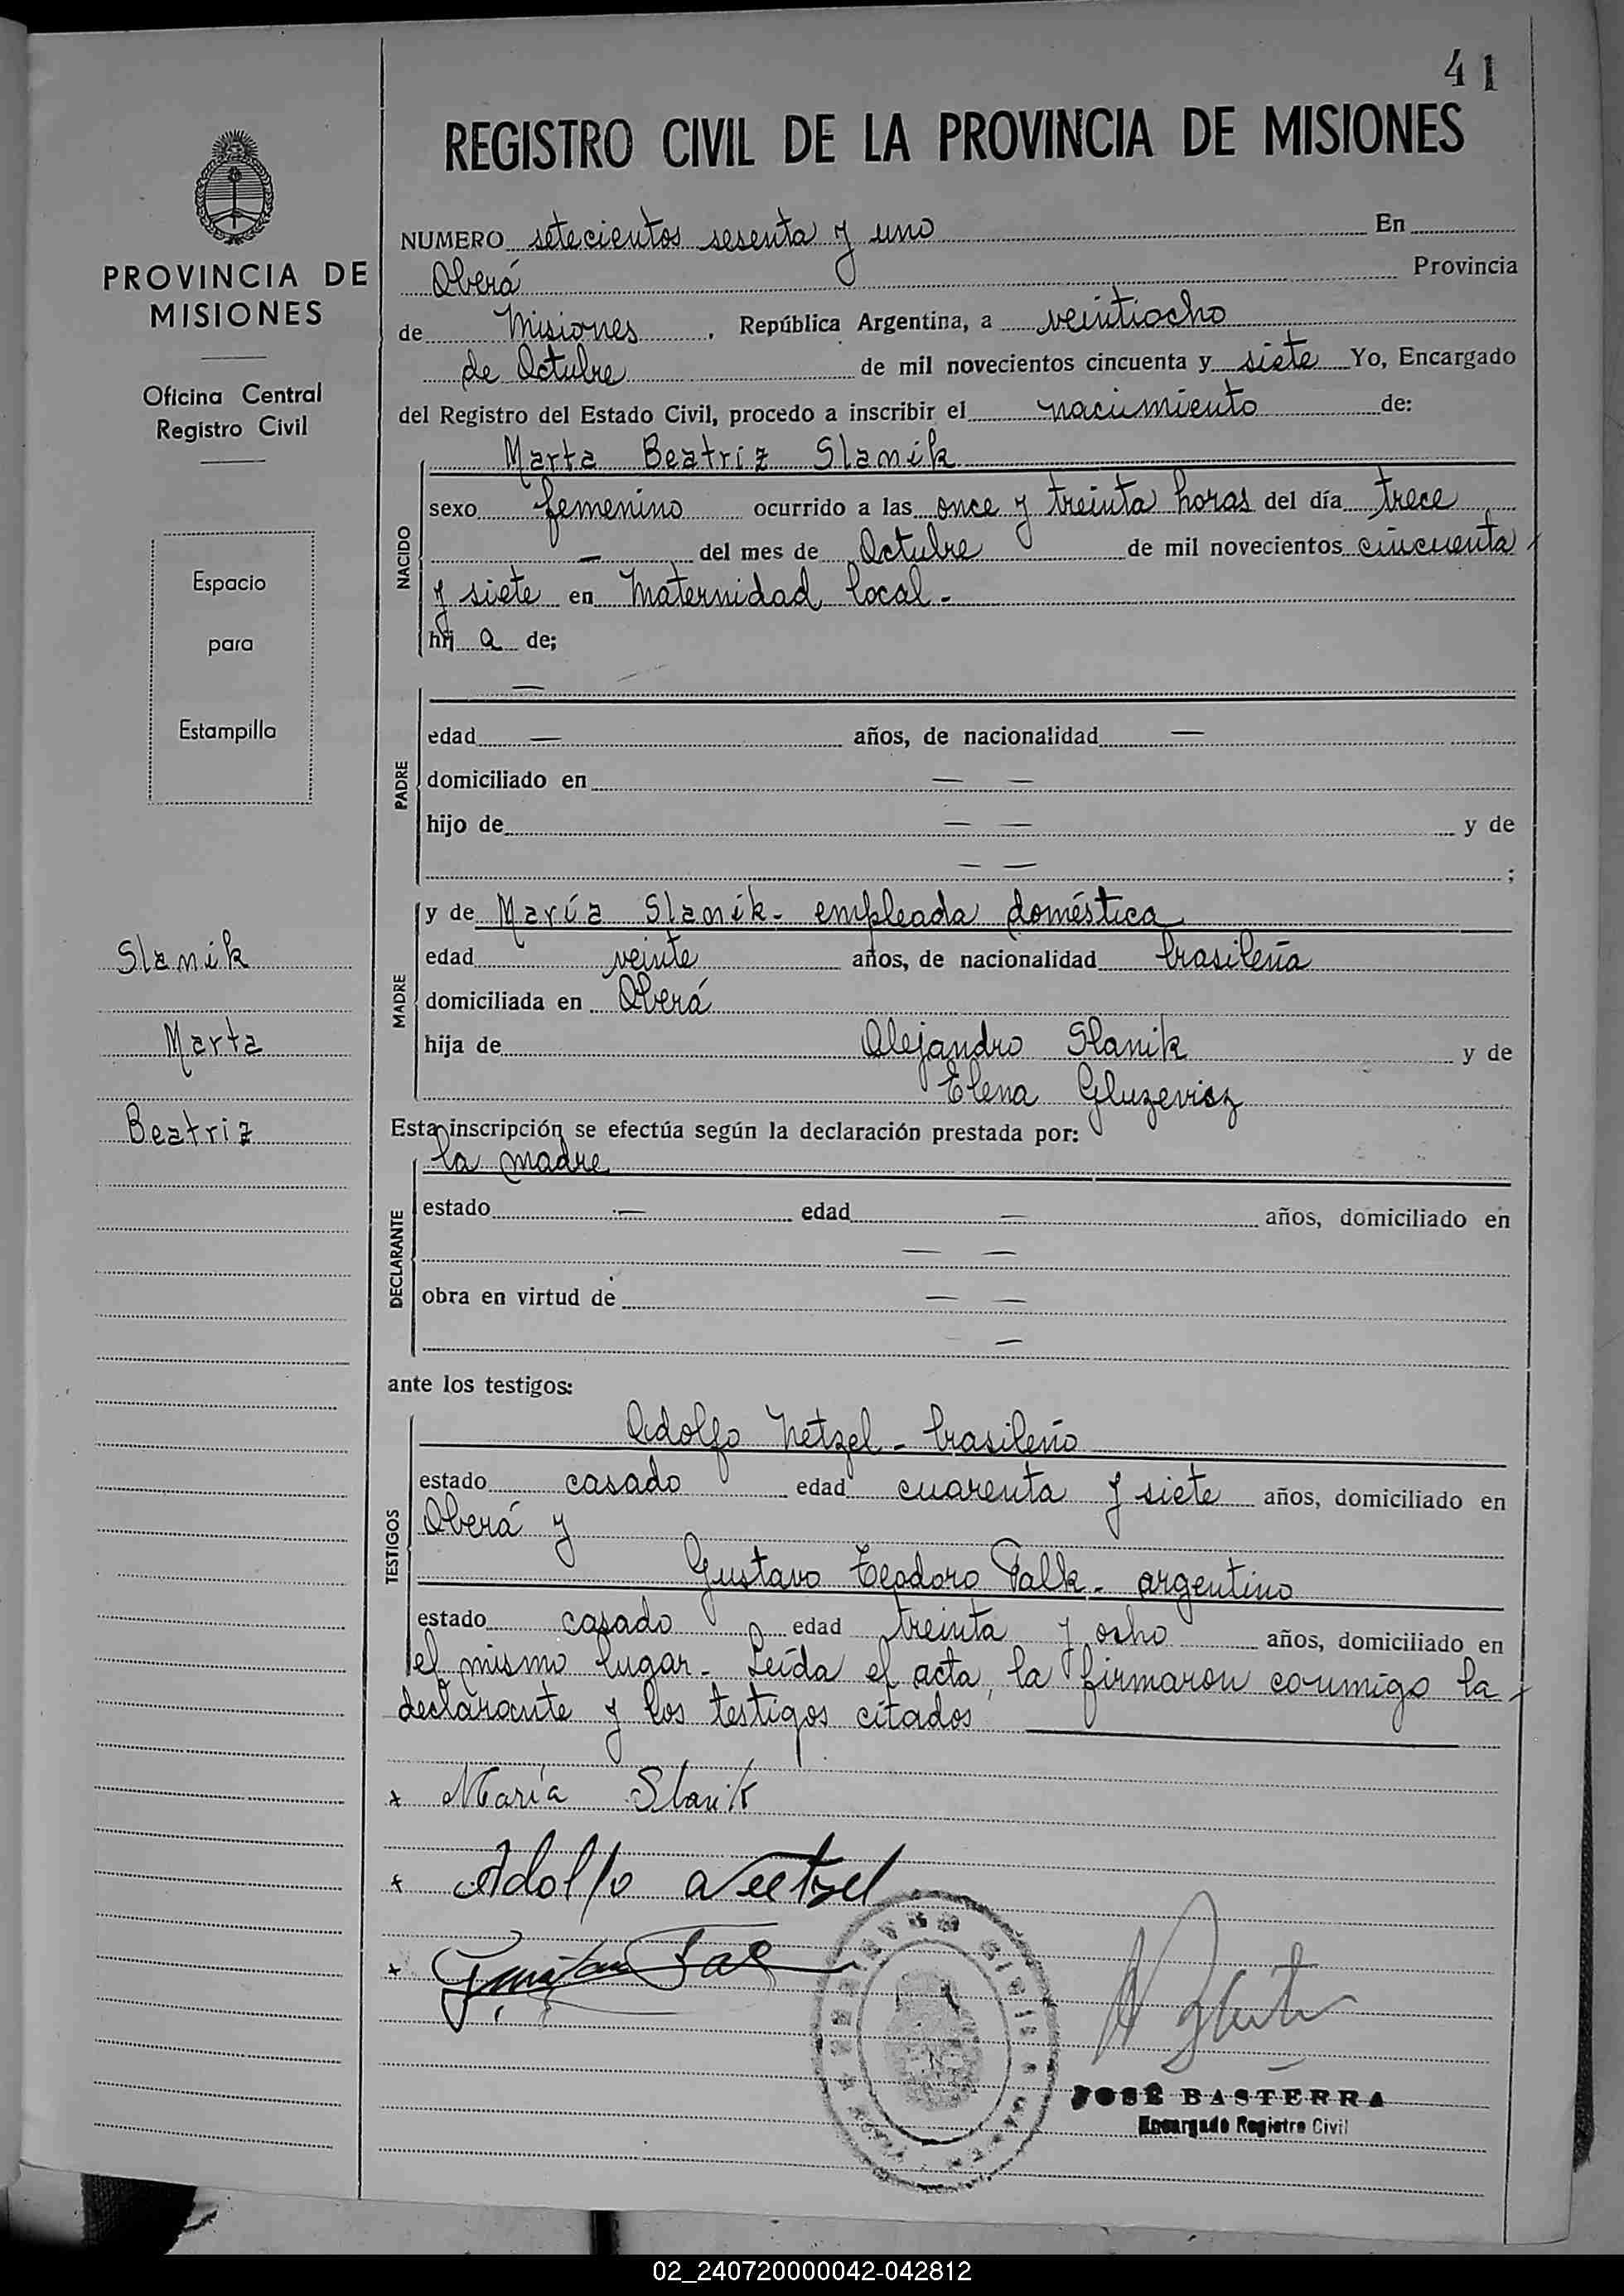 41
REGISTRO CIVIL DE LA PROVINCIA DE MISIONES
PROVINCIA DE
MISIONES
Oficina Central
Registro Civil
Espacio
para
Estampilla
Slanik
Marta
Beatriz
NUMERO setecientos sesenta y uno En
Oberá Provincia
de Misiones, República Argentina, a veintiocho
de Octubre de mil novecientos cincuenta y siete Yo, Encargado
del Registro del Estado Civil, procedo a inscribir el nacimiento de:
NACIDO
Marta Beatriz Slanik
sexo femenino ocurrido a las once y treinta horas del día trece
— del mes de Octubre de mil novecientos cincuenta
y siete en Maternidad local.-
hij a de;
PADRE
—
edad — años, de nacionalidad —
domiciliado en — —
hijo de — — y de
— — ;
MADRE
y de María Slanik- empleada doméstica
edad veinte años, de nacionalidad brasileña
domiciliada en Oberá
hija de Alejandro Slanik y de
Elena Gluzevicz
Esta inscripción se efectúa según la declaración prestada por:
DECLARANTE
la madre
estado — edad — años, domiciliado en
— —
obra en virtud de — —
—
ante los testigos:
TESTIGOS
Adolfo Netzel - brasileño
estado casado edad cuarenta y siete años, domiciliado en
Oberá y
Gustavo Teodoro Falk- argentino
estado casado edad treinta y ocho años, domiciliado en
el mismo lugar- Leída el acta, la firmaron conmigo la
declarante y los testigos citados
x María Slanik
x Adolfo Neetzel
x
JOSÉ BASTERRA
Encargado Registro Civil
02_240720000042-042812